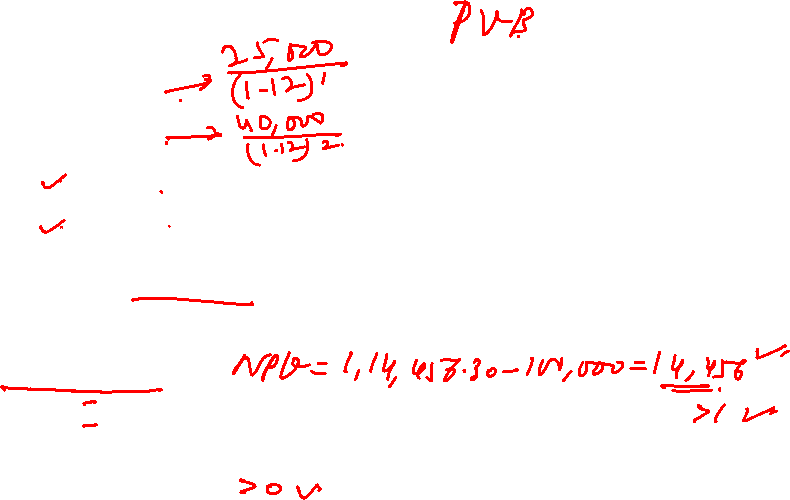 PVB
25,000
(1.12)¹
40,000
(1.12)2.
NPV = 1,14,456.30 - 100,000 = 14,456
>1
>0